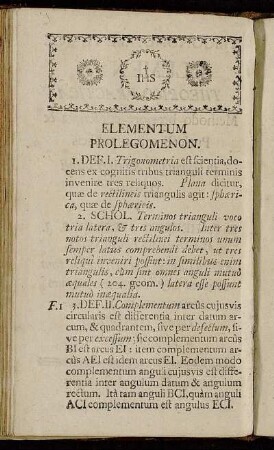 IHS
ELEMENTUM
PROLEGOMENON.
1. DEF. I. Trigonometria est scientia, do-
cens ex cognitis tribus trianguli terminis
invenire tres reliquos. Plana dicitur,
quæ de rectilineis triangulis agit: sphæri-
ca, quæ de sphæricis.
2. SCHOL. Terminos trianguli voco
tria latera, & tres angulos. Inter tres
notos trianguli rectilinei terminos unum
semper latus comprehendi debet, ut tres
reliqui inveniri possint: in similibus enim
triangulis, cùm sint omnes anguli mutuò
æquales (204. geom.) latera esse possunt
mutuò inæqualia.
F. 1 3. DEF. II. Complementum arcûs cujusvis
circularis est differentia inter datum ar-
cum, & quadrantem, sive per defectum, si-
ve per excessum; sic complementum arcûs
BI est arcus EI: item complementum ar-
cûs AEI est idem arcus EI. Eodem modo
complementum anguli cujusvis est diffe-
rentia inter angulum datum & angulum
rectum. Ità tam anguli BCI, quàm anguli
ACI complementum est angulus ECI.